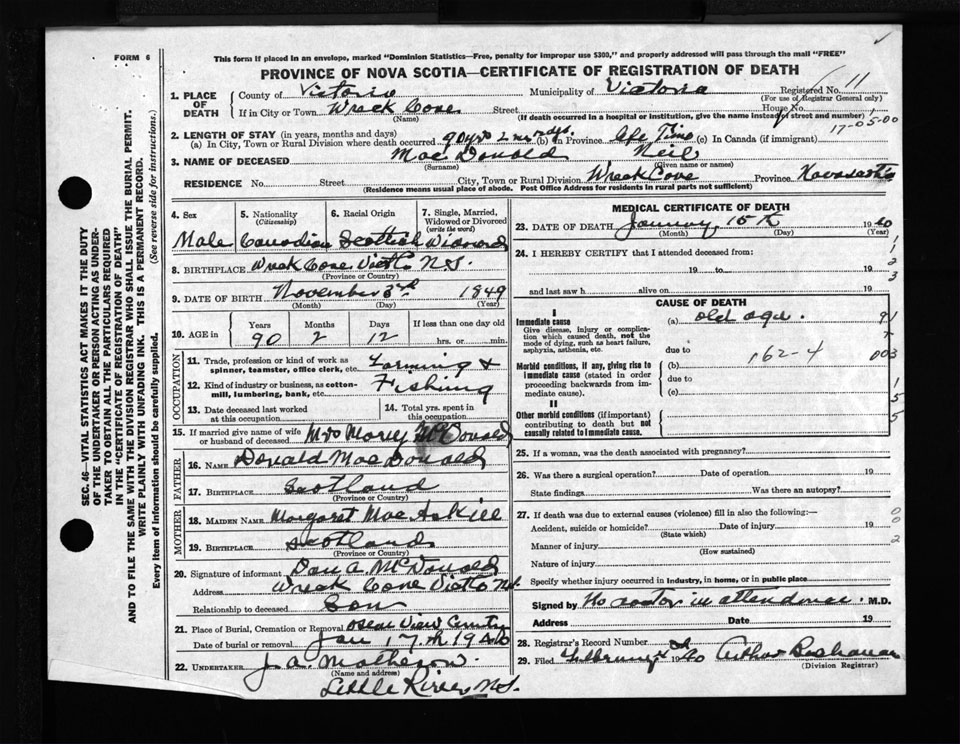 FORM 6
This form if placed in an envelope, marked "Dominion Statistics—Free, penalty for improper use $300," and properly addressed will pass through the mail "FREE"
PROVINCE OF NOVA SCOTIA—CERTIFICATE OF REGISTRATION OF DEATH
1. PLACE OF DEATH
County of Victoria Municipality of Victoria Registered No. 11
(For use of Registrar General only)
If in City or Town Wreck Cove Street House No.
(Name) (If death occurred in a hospital or institution, give the name instead of street and number)
17-05-00
2. LENGTH OF STAY (in years, months and days)
(a) In City, Town or Rural Division where death occurred 90 yrs 2 ms dys. (b) In Province Life Time (c) In Canada (if immigrant)
3. NAME OF DECEASED Mac Donald Neil
(Surname) (Given name or names)
RESIDENCE No. Street City, Town or Rural Division Wreck Cove Province Nova Scotia
(Residence means usual place of abode. Post Office Address for residents in rural parts not sufficient)
4. Sex
Male
5. Nationality
(Citizenship)
Canadian
6. Racial Origin
Scottish
7. Single, Married, Widowed or Divorced
(write the word)
Widowed
8. BIRTHPLACE Wreck Cove Victo N.S.
(Province or Country)
9. DATE OF BIRTH November 3rd 1849
(Month) (Day) (Year)
10. AGE in
Years Months Days If less than one day old
90 2 12 hrs. or min.
OCCUPATION
11. Trade, profession or kind of work as spinner, teamster, office clerk, etc. Farming &
12. Kind of industry or business, as cotton-mill, lumbering, bank, etc. Fishing
13. Date deceased last worked at this occupation
14. Total yrs. spent in this occupation
15. If married give name of wife or husband of deceased Mrs Mary McDonald
FATHER
16. NAME Donald MacDonald
17. BIRTHPLACE Scotland
(Province or Country)
MOTHER
18. MAIDEN NAME Margaret Mac Askill
19. BIRTHPLACE Scotland
(Province or Country)
20. Signature of informant Dan A. McDonald
Address Wreck Cove Victo N.S.
Relationship to deceased Son
21. Place of Burial, Cremation or Removal Ocean View Cemetery
Date of burial or removal Jan 17th 1940
22. UNDERTAKER J. A. Matheson.
(Name and address)
Little River N.S.
MEDICAL CERTIFICATE OF DEATH
23. DATE OF DEATH January 15th 1940
(Month) (Day) (Year)
24. I HEREBY CERTIFY that I attended deceased from:
19 to 19
and last saw h alive on 19
CAUSE OF DEATH
I
Immediate cause
Give disease, injury or complication which caused death, not the mode of dying, such as heart failure, asphyxia, asthenia, etc.
(a) old age.
due to 162-4
Morbid conditions, if any, giving rise to immediate cause (stated in order proceeding backwards from immediate cause).
(b)
due to
(c)
II
Other morbid conditions (if important) contributing to death but not causally related to immediate cause.
25. If a woman, was the death associated with pregnancy?
26. Was there a surgical operation? Date of operation 19
State findings Was there an autopsy?
27. If death was due to external causes (violence) fill in also the following:—
Accident, suicide or homicide? Date of injury 19
(State which)
Manner of injury
(How sustained)
Nature of injury
Specify whether injury occurred in industry, in home, or in public place
Signed by No doctor in attendance. M.D.
Address Date 19
28. Registrar's Record Number 2
29. Filed February 1940 Arthur Buchanan
(Division Registrar)
SEC. 46—VITAL STATISTICS ACT MAKES IT THE DUTY
OF THE UNDERTAKER OR PERSON ACTING AS UNDER-
TAKER TO OBTAIN ALL THE PARTICULARS REQUIRED
IN THE "CERTIFICATE OF REGISTRATION OF DEATH"
AND TO FILE THE SAME WITH THE DIVISION REGISTRAR WHO SHALL ISSUE THE BURIAL PERMIT.
WRITE PLAINLY WITH UNFADING INK. THIS IS A PERMANENT RECORD.
Every item of information should be carefully supplied. (See reverse side for instructions.)